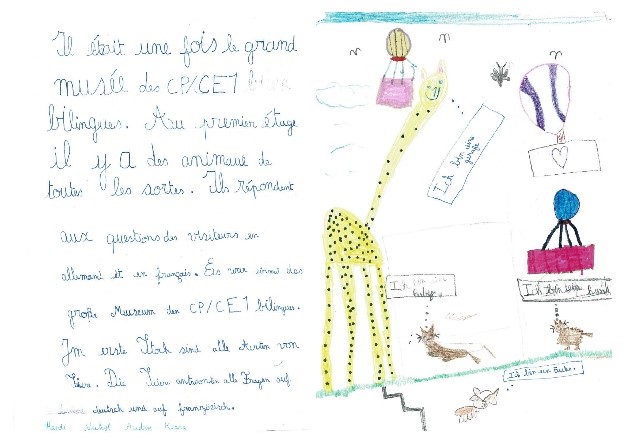 Il était une fois le grand
musée des CP/CE1
bilingues. Au premier étage
il y a des animaux de
toutes les sortes. Ils répondent
aux questions des visiteurs en
allemand et en français. Es war einmal das
große Museum den CP/CE1 bilingues.
Im erste Stock sind alle Arten von
Tiere. Die Tiere antworten alle Fragen auf
deutsch und auf französisch.
Heidi Audrey
Ich bin eine
girafe
Ich bin
Ich bin
Ich bin ein